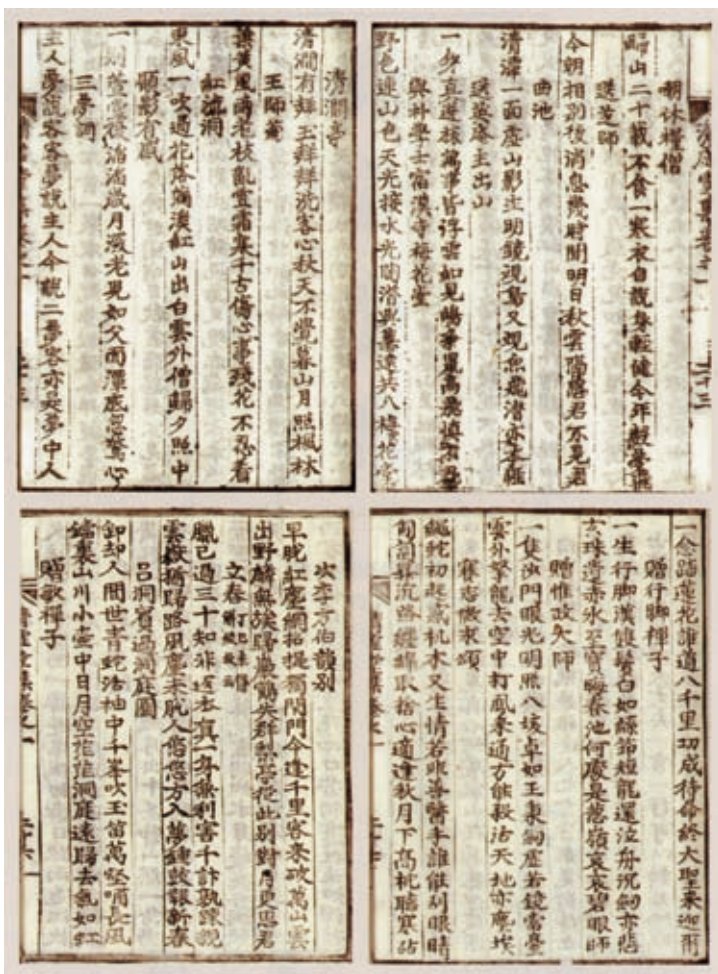 休糧僧
歸山二十載不食一寒衣自說身輕健今年
送芝師
今朝相別後消息幾時聞明日秋雲隔思君不見君
曲池
清潭一面虛山影明鏡視鳥又觀魚飛潛亦
送英庵主出山
一身萬事皆浮雲如見
與朴學士宿漢寺梅花堂
野色連山色天光接水光陶潛與惠遠共入梅花堂
清澗亭
清澗有群玉群群洗客心秋天不覺暮山月照楓林
王師菴
葉黃風雨老枝亂雪霜寒千古傷心事殘花不忍看
紅流洞
東風一吹過花落滿溪紅山出白雲外僧歸夕照中
顧影有感
一別萱堂後滔滔歲月深老兒如父面潭底忽驚心
三夢詞
主人夢說客客夢說主人今說二夢客亦是夢中人
一念踏蓮花誰道八千里功成待命終大聖來迎爾
贈行脚禪子
一生行脚漢雙鬢白如絲節短能還泣舟沉劍亦悲
玄珠遺赤水至寶何處是葱嶺哀哀碧眼師
贈惟政大師
一隻沙門眼光明照八垓卓如王秉劒虛若鏡當臺
雲外拏龍去空中打鳳來通方能殺活天地亦塵埃
賽志徹求頌
繩蛇初起惑杌木又生情若非善醫手誰能別眼睛
匐匐昇沉路纏綿取捨心適逢秋月下高枕聽寒砧
次李方伯韻別
早脫紅塵網招提獨閉門今逢千里客來破萬山雲
出野麟無族歸巢鶴失群梨亭從此別對月更思君
立春
臘已過三十知非返本真一身無利害千計孰疎親
雲散猶歸路風塵未脫人方入夢鍾鼓報新春
呂洞賓過洞庭圖
卸却人間世青蛇活袖中千峯吹玉笛萬壑嘯長風
鐺裏山川小壺中日月空茫茫洞庭遠歸去氣如虹
贈敬禪子